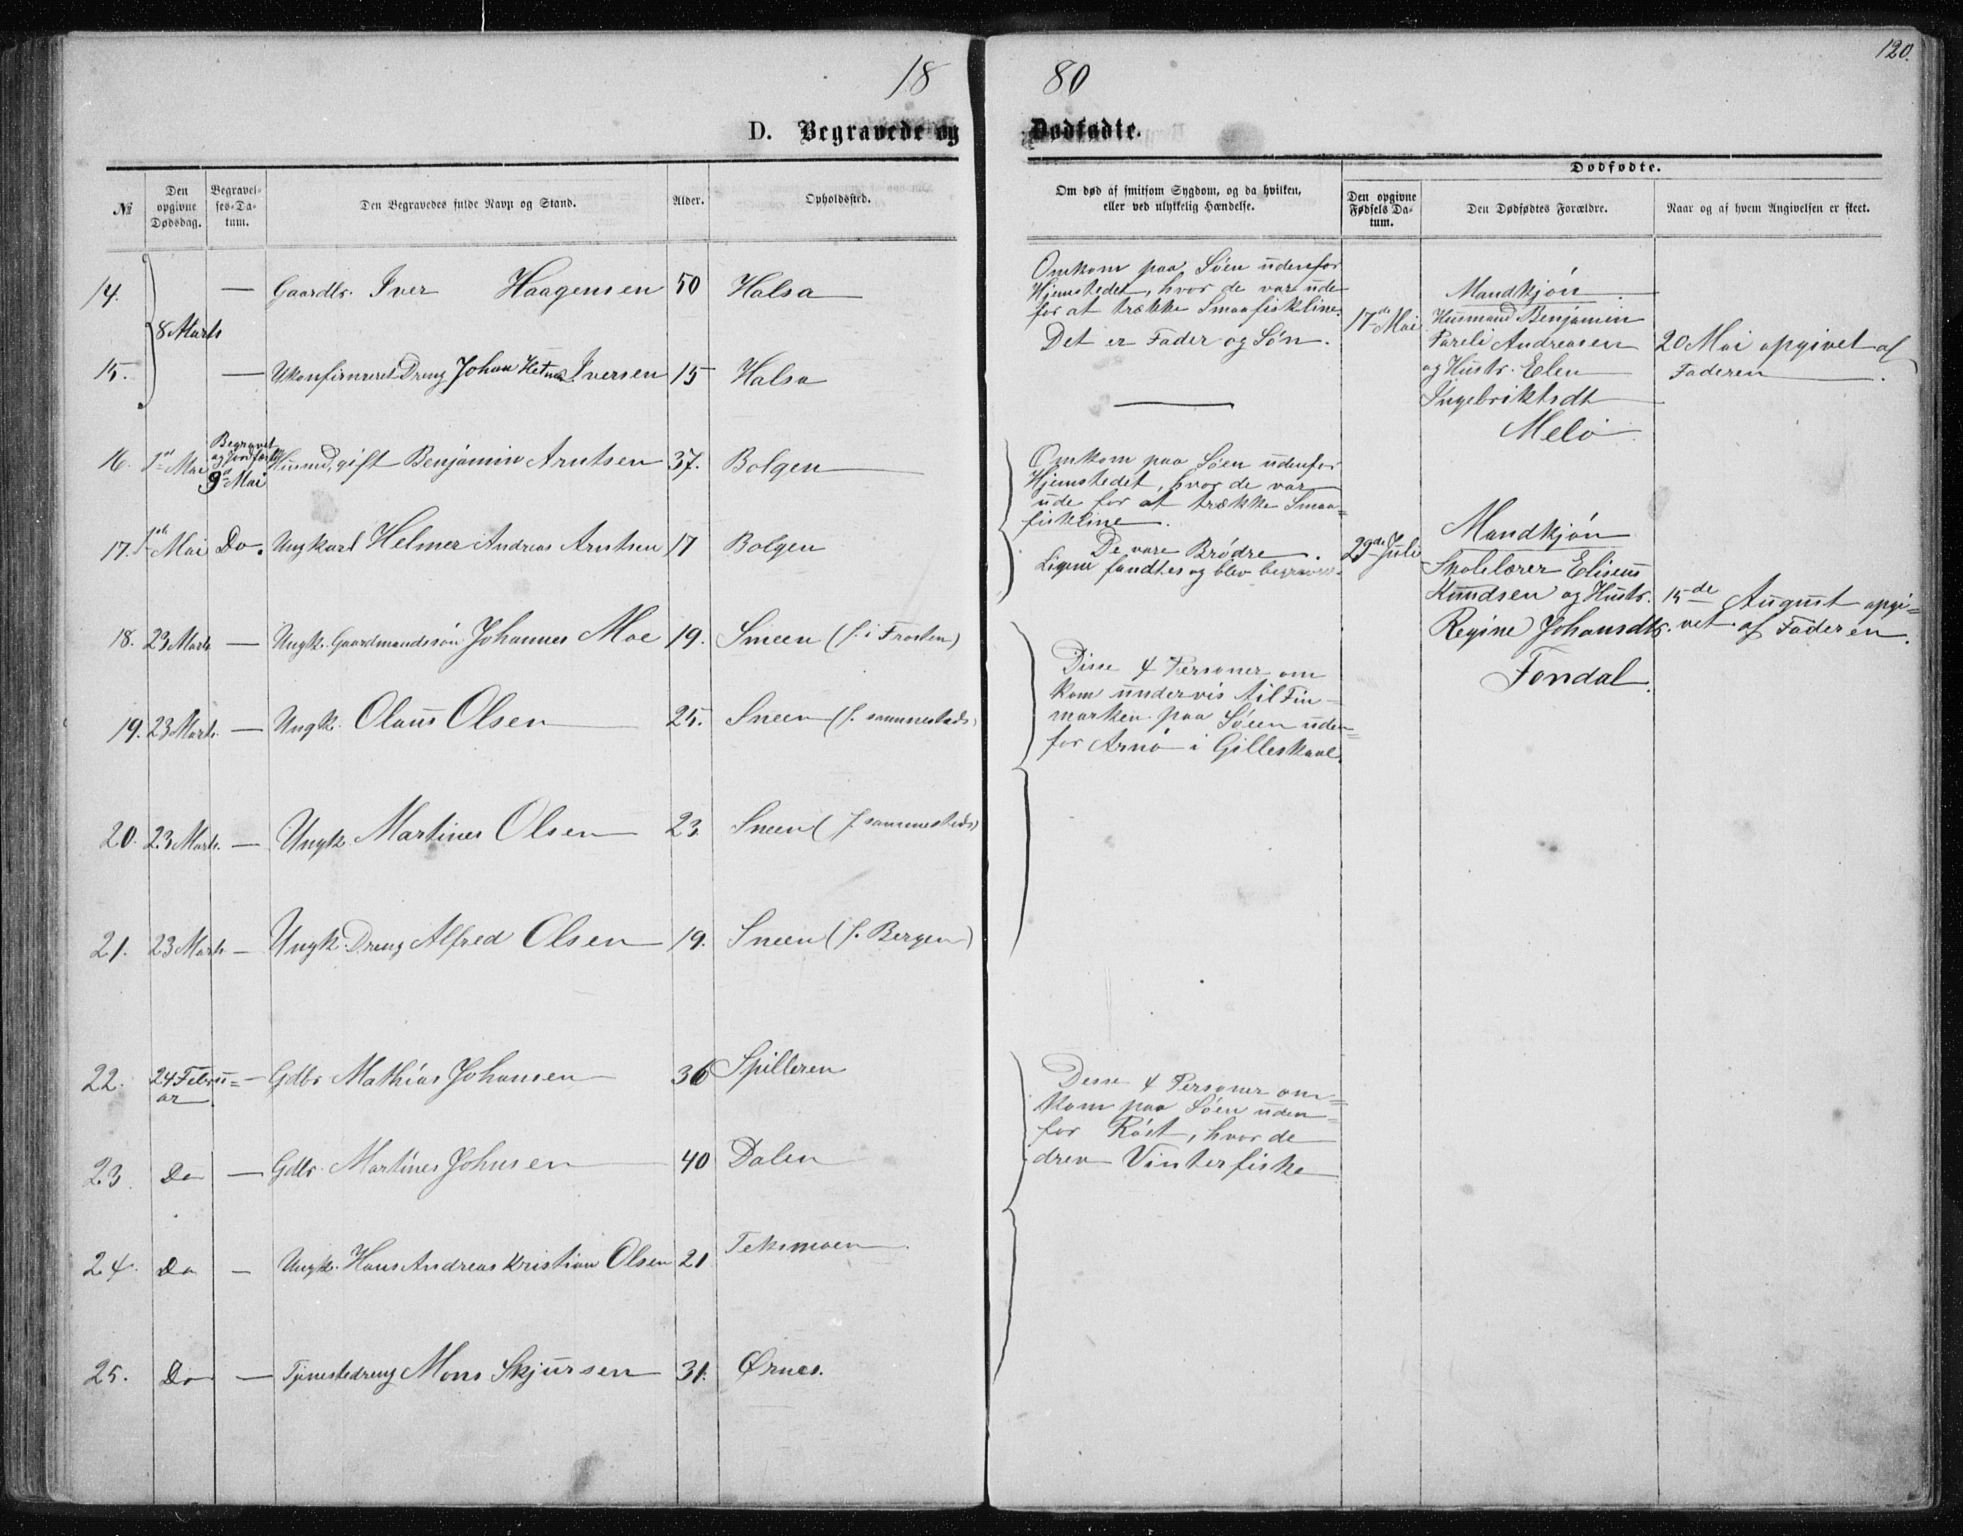 120.
18 80
D. Begravede og Dødfødte.
№
Den opgivne Dødsdag.
Begravelses-Datum.
Den Begravedes fulde Navn og Stand.
Alder.
Opholdssted.
Om død af smitsom Sygdom, og da hvilken,
eller ved ulykkelig Hændelse.
Dødfødte.
Den opgivne Fødsels Datum.
Den Dødfødtes Forældre.
Naar og af hvem Angivelsen er skeet.
14. — Gaardbr. Iver Haagensen 50 Halsa
8 Marts
15. — Ukonfirmeret Dreng Johan Iversen 15 Halsa
Omkom paa Søen udenfor
Hjemstedet, hvor de var ude
for at trække Smaafiskline.
Det er Fader og Søn.
16. 1ste Mai Begravet og Jordfæstet 9de Mai Husmd, gift Benjamin Arntsen 37. Bolgen
17. 1ste Mai Do. Ungkarl Helmer Andreas Arntsen 17 Bolgen
Omkom paa Søen udenfor
Hjemstedet, hvor de var
ude for at trække Smaa=
fiskline.
De vare Brødre.
Ligene fandtes og blev begravet.
18. 23 Marts — Ungk. Gaardmandssøn Johannes Moe 19. Sneen (f. i Frosten)
19. 23 Marts. — Ungk. Olaus Olsen 25. Sneen (f. sammesteds)
20. 23 Marts. — Ungk. Martines Olsen 23. Sneen (f. sammesteds)
21. 23 Marts — Ungk. Dreng Alfred Olsen 19. Sneen (f. Bergen)
Disse 4 Personer om
kom undervis til Fin=
marken paa Søen uden=
for Arnø i Gilleskaal.
22. 24 Febru=ar — Gdbr Mathias Johansen 36 Spilderen
23. Do — Gdbr. Martines Johnsen 40 Dalen
24. Do — Ungk. Hans Andreas Kristian Olsen 21 Teksmoen
25. Do — Tjenestedreng Mons Skjursen 31. Ørnes.
Desse 4 Personer om=
kom paa Søen uden=
for Røst, hvor de
drev Vinterfiske
17de Mai
Mandkjøn
Husmand Benjamin
Pareli Andreasen
og Hustr. Elen
Ingebriktsdt
Melø.
20 Mai opgivet af
Faderen.
29de Juli
Mandkjøn
Skolelærer Eliseus
Knudsen og Hustr.
Regine Johansdtr.
Fondal.
15de August opgi=
vet af Faderen.